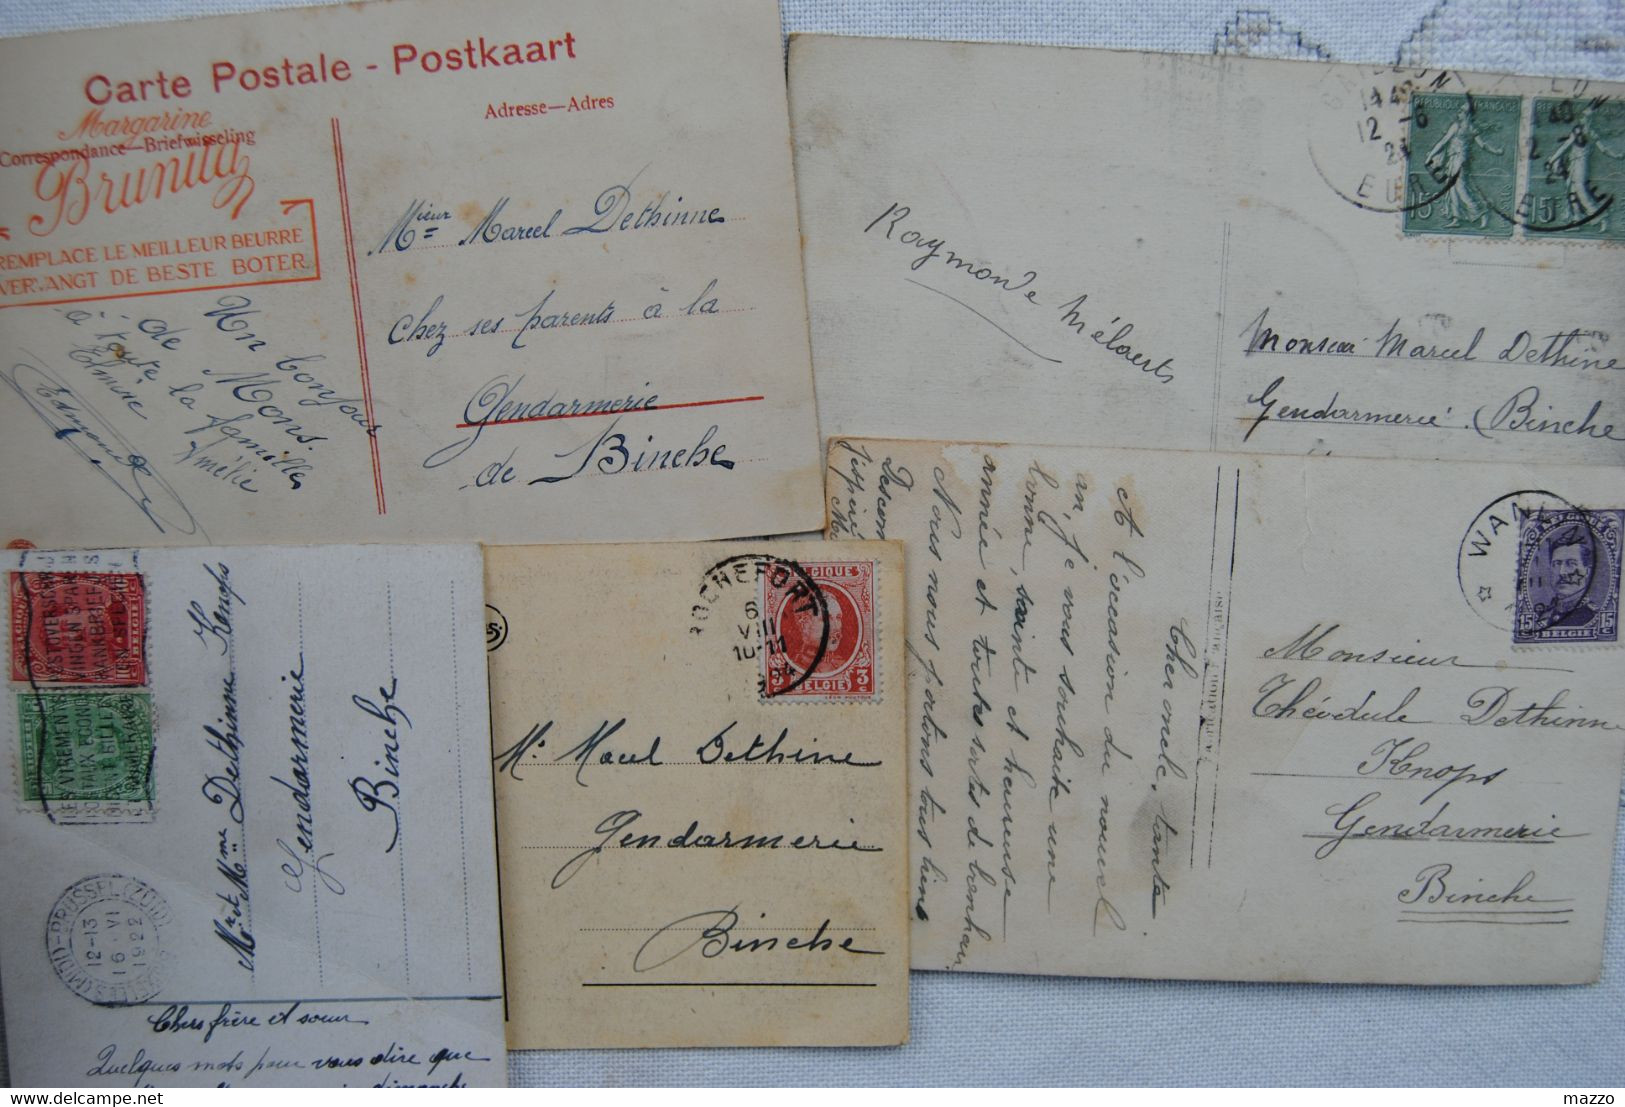 Carte Postale - Postkaart
Adresse—Adres
Margarine
Correspondance—Briefwisseling
Brunita
REMPLACE LE MEILLEUR BEURRE
VERVANGT DE BESTE BOTER
Mieur Marcel Dethinne
Chez ses parents à la
Gendarmerie
de Binche
Un bonjour
de Mons.
à toute la famille
Elmire Amélie
Edmond
Raymonde Mélaerts
12 -6
24
EURE
REPUBLIQUE FRANÇAISE
15
Monsieur Marcel Dethine
Gendarmerie (Binche
Cher oncle, tante
A l'occasion du nouvel
an, je vous souhaite une
bonne, sainte et heureuse
année et toutes sortes de bonheur.
Nous nous portons tous biens
j'espère
BELGIE
15
Monsieur
Théodule Dethinne
Knops
Gendarmerie
Binche
Mr et Mme Dethinne Knops
Gendarmerie
Binche
POSTOVERSCHRIJ
VINGEN SPAREN
12-13
16 VI
1922
Chers frère et soeur
Quelques mots pour vous dire que
dimanche
ROCHEFORT
6
VIII
10-11
BELGIQUE
3 BELGIE 3
Mr Marcel Dethine
Gendarmerie
Binche
mazzo